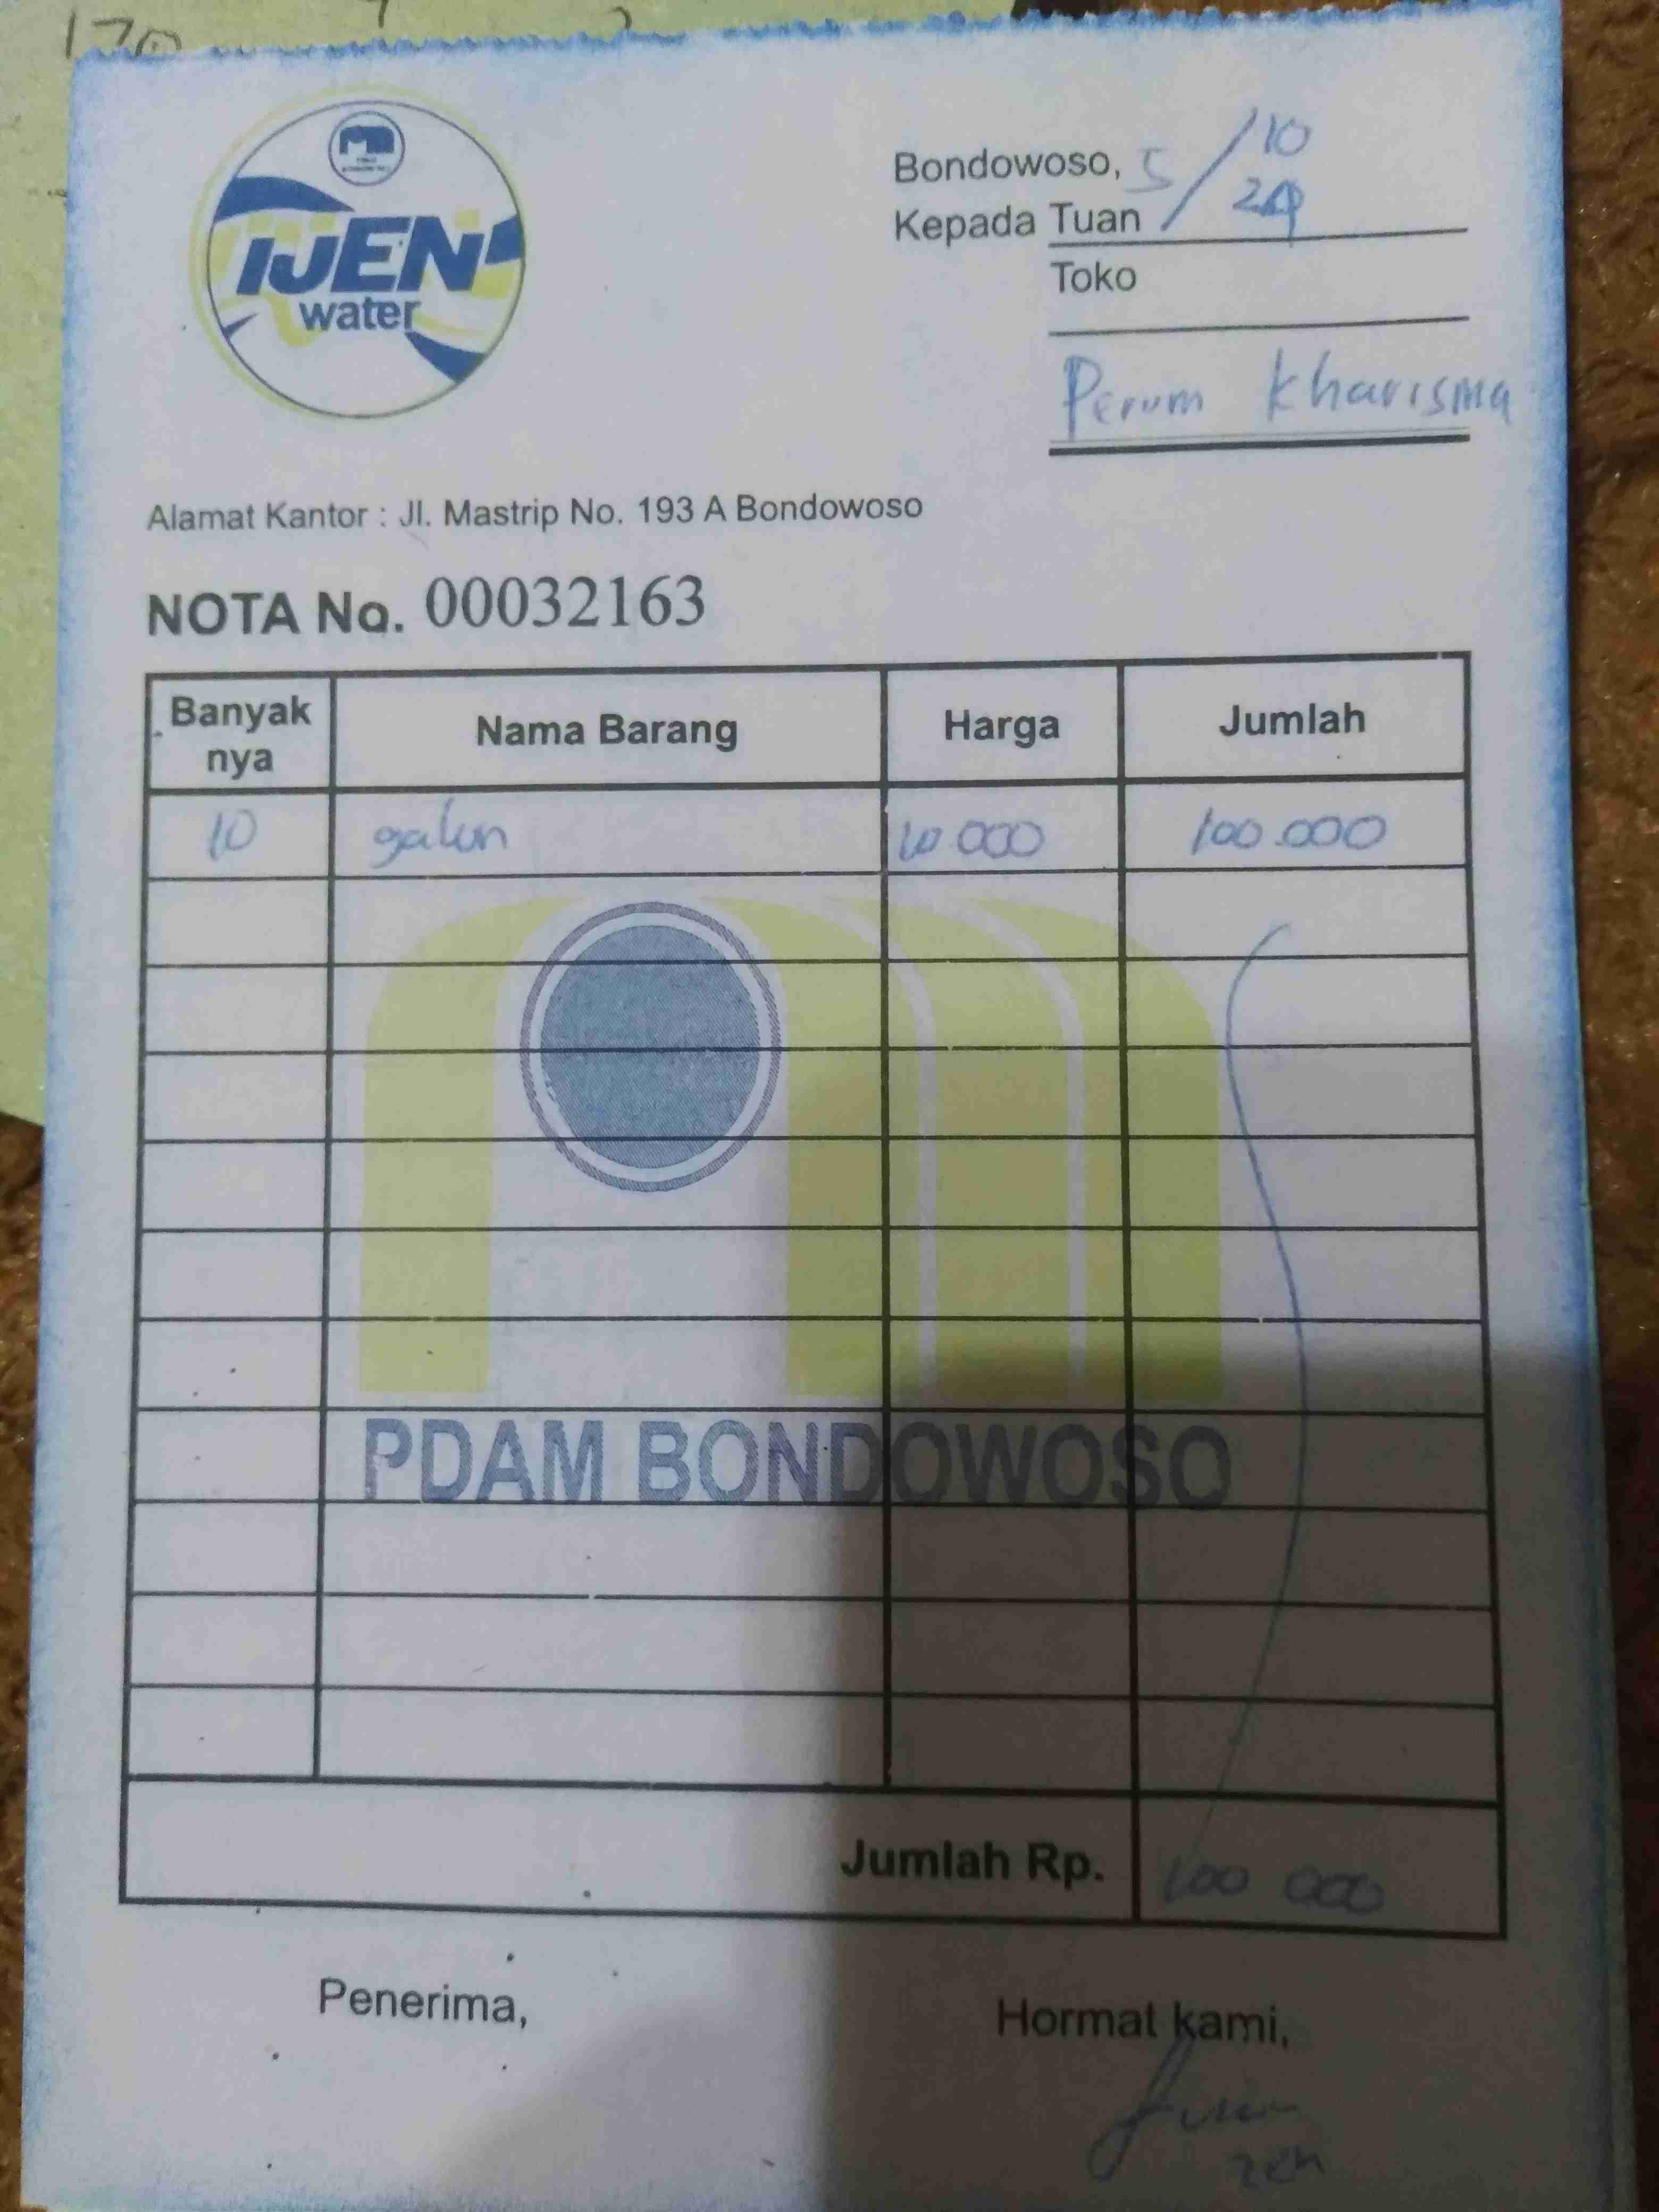 170
IJEN
water
Bondowoso, 5/10 24
Kepada Tuan
Toko
Perum kharisma
Alamat Kantor : Jl. Mastrip No. 193 A Bondowoso
NOTA No. 00032163
Banyak nya Nama Barang Harga Jumlah
10 galon 10 000 100.000
PDAM BONDOWOSO
Jumlah Rp. 100 000
Penerima,
Hormat kami,
zen